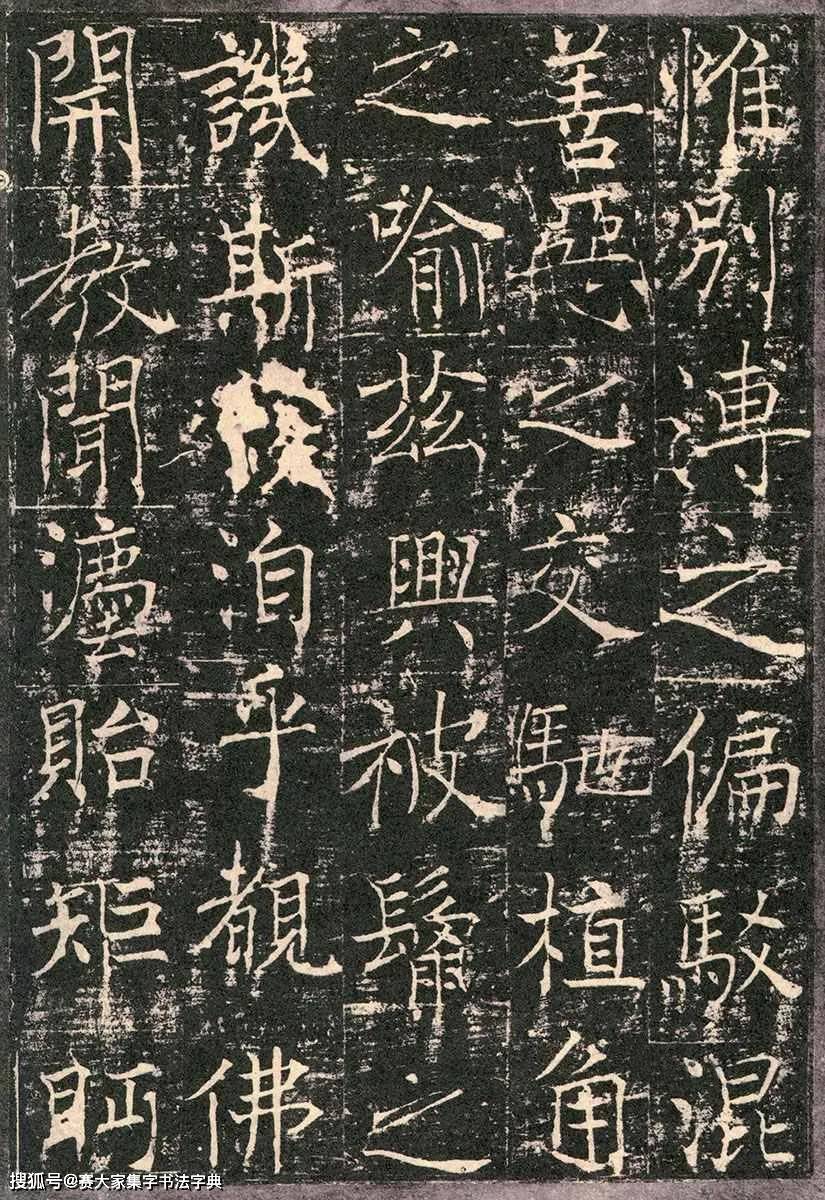 惟別溥之偏駮混
善惡之交馳植角
之喻茲興被之
譏斯洎乎覩佛
開教聞灋貽矩眄
搜狐号@赛大家集字书法字典